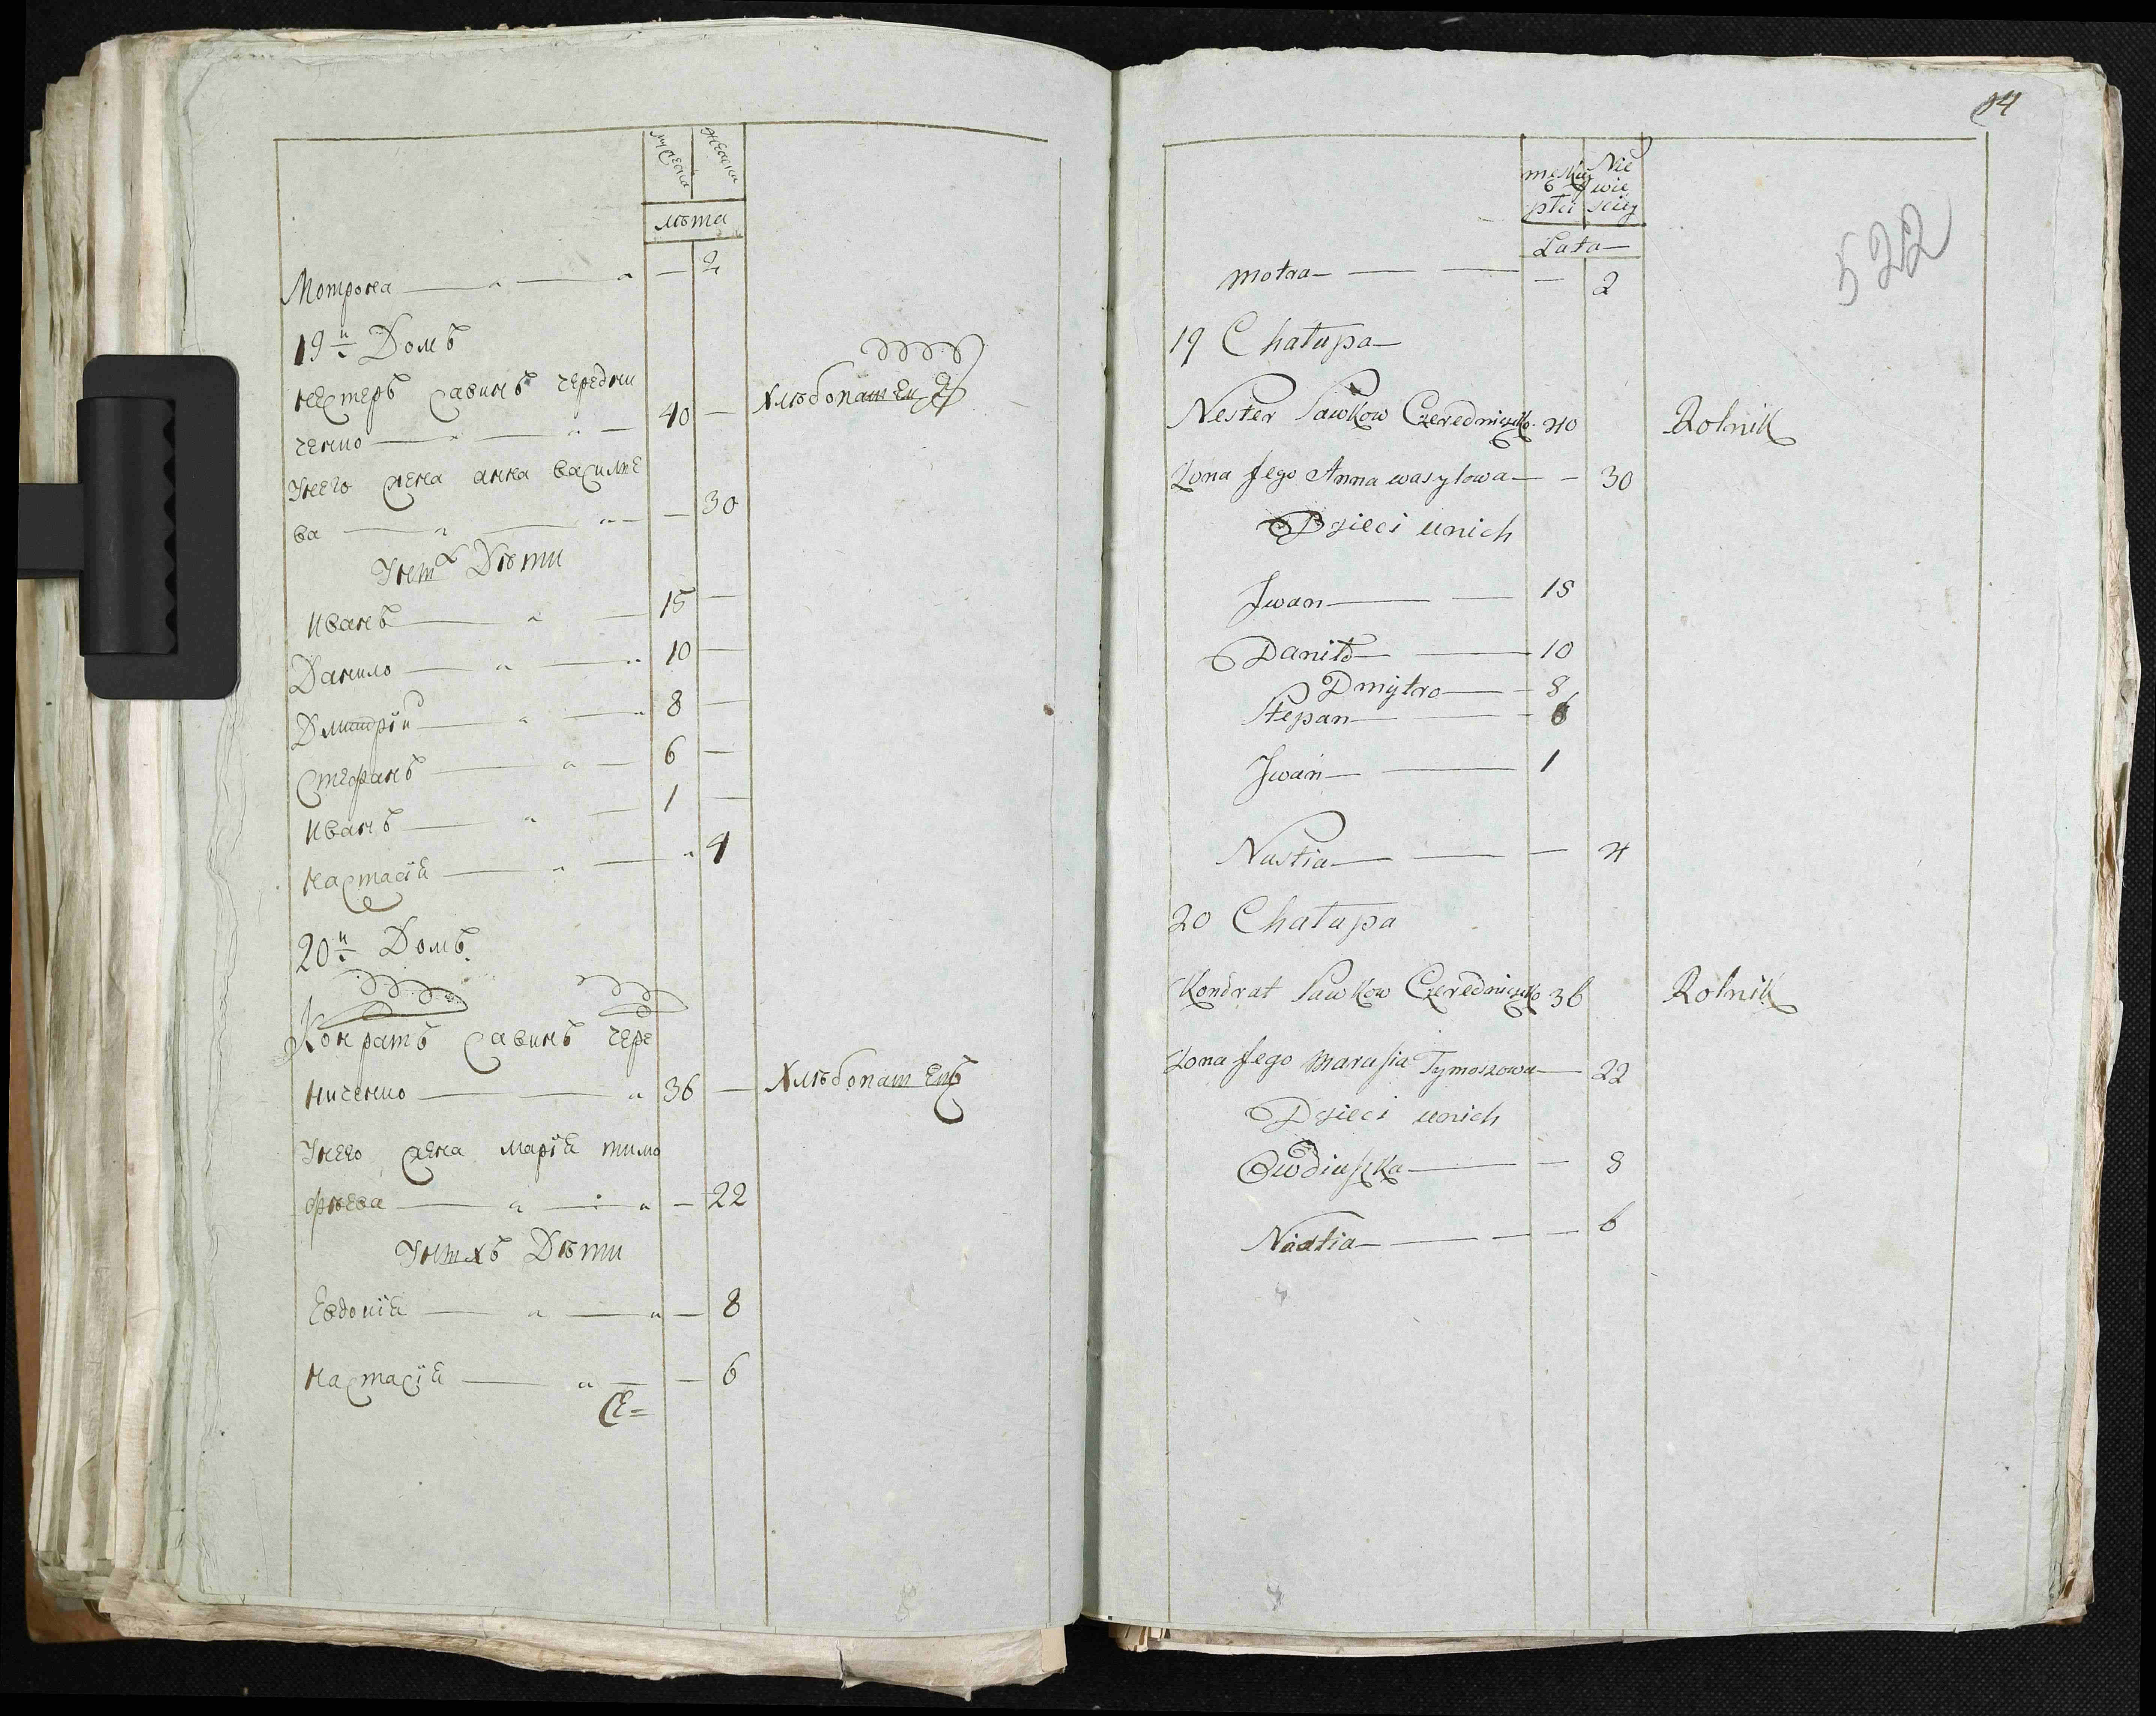 мужеска
женска
лѣта
Мотрона — — 2
19й Домъ
нестеръ Савинъ Чередни
ченко — 40 — Хлѣбопашецъ
Унего жена анна василие
ва — — 30
Унихъ Дѣти
Иванъ — 15 —
Данило — 10 —
Дмитрій — 8 —
Стефанъ — 6 —
Иванъ — 1 —
настасія — 4
20й Домъ.
Кондратъ Савинъ Чере
ниченко — 36 — Хлѣбопашецъ
Унего жена марія тимо
фѣева — — 22
Унихъ Дѣти
Евдокія — — 8
настасія — — 6
Се=
522
męskiey płci
Niewieściey
Lata
Motra — — 2
19 Chałupa
Nester Sawkow Czeredniczęko 40 Rolnik
Zona Jego Anna wasylowa — 30
Dzieci unich
Jwan — 15
Daniło — 10
Dmytro — 8
Stepan — 6
Jwan — 1
Nastia — — 4
20 Chałupa
Kondrat Sawkow Czeredniczęko 36 Rolnik
Zona Jego Marusia Tymoszowa — 22
Dzieci unich
Owdiuszka — — 8
Nastia — — 6